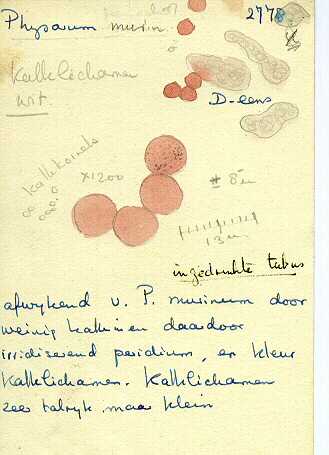 Physarum murin.
2778
Kalklichamen
wit.
D-lens
kalkkorrels
x1200
# 8 µ
13 µ
ingedrukte tubus
afwijkend v. P. murinum door
weinig kalk en daardoor
iridiserend peridium, en kleur
Kalklichamen. Kalklichamen
zeer talrijk maar klein